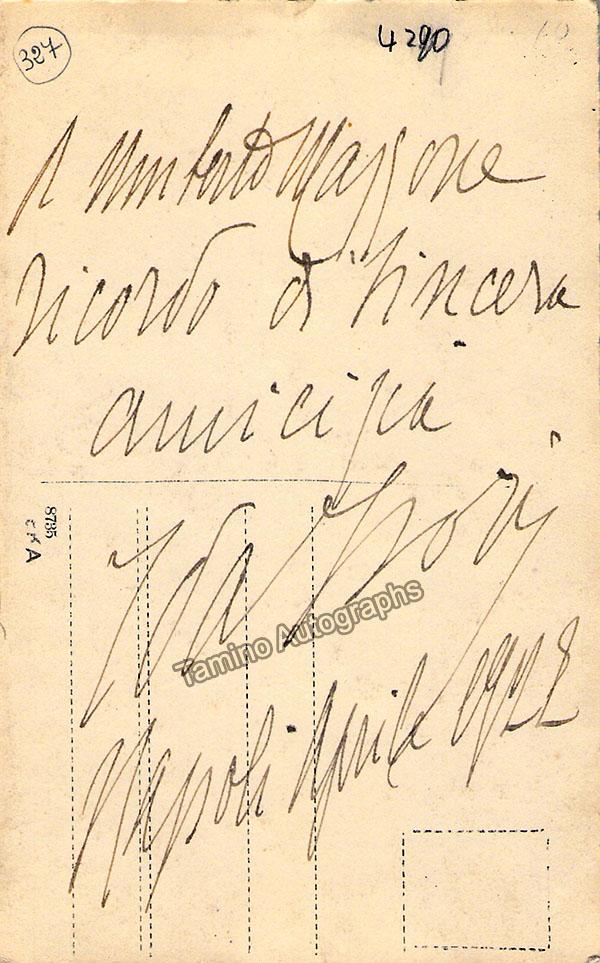 327
4290
A Umberto Mazzone
ricordo di sincera
amicizia
8735
A
Ida
Tamino Autographs
Napoli Aprile 1922